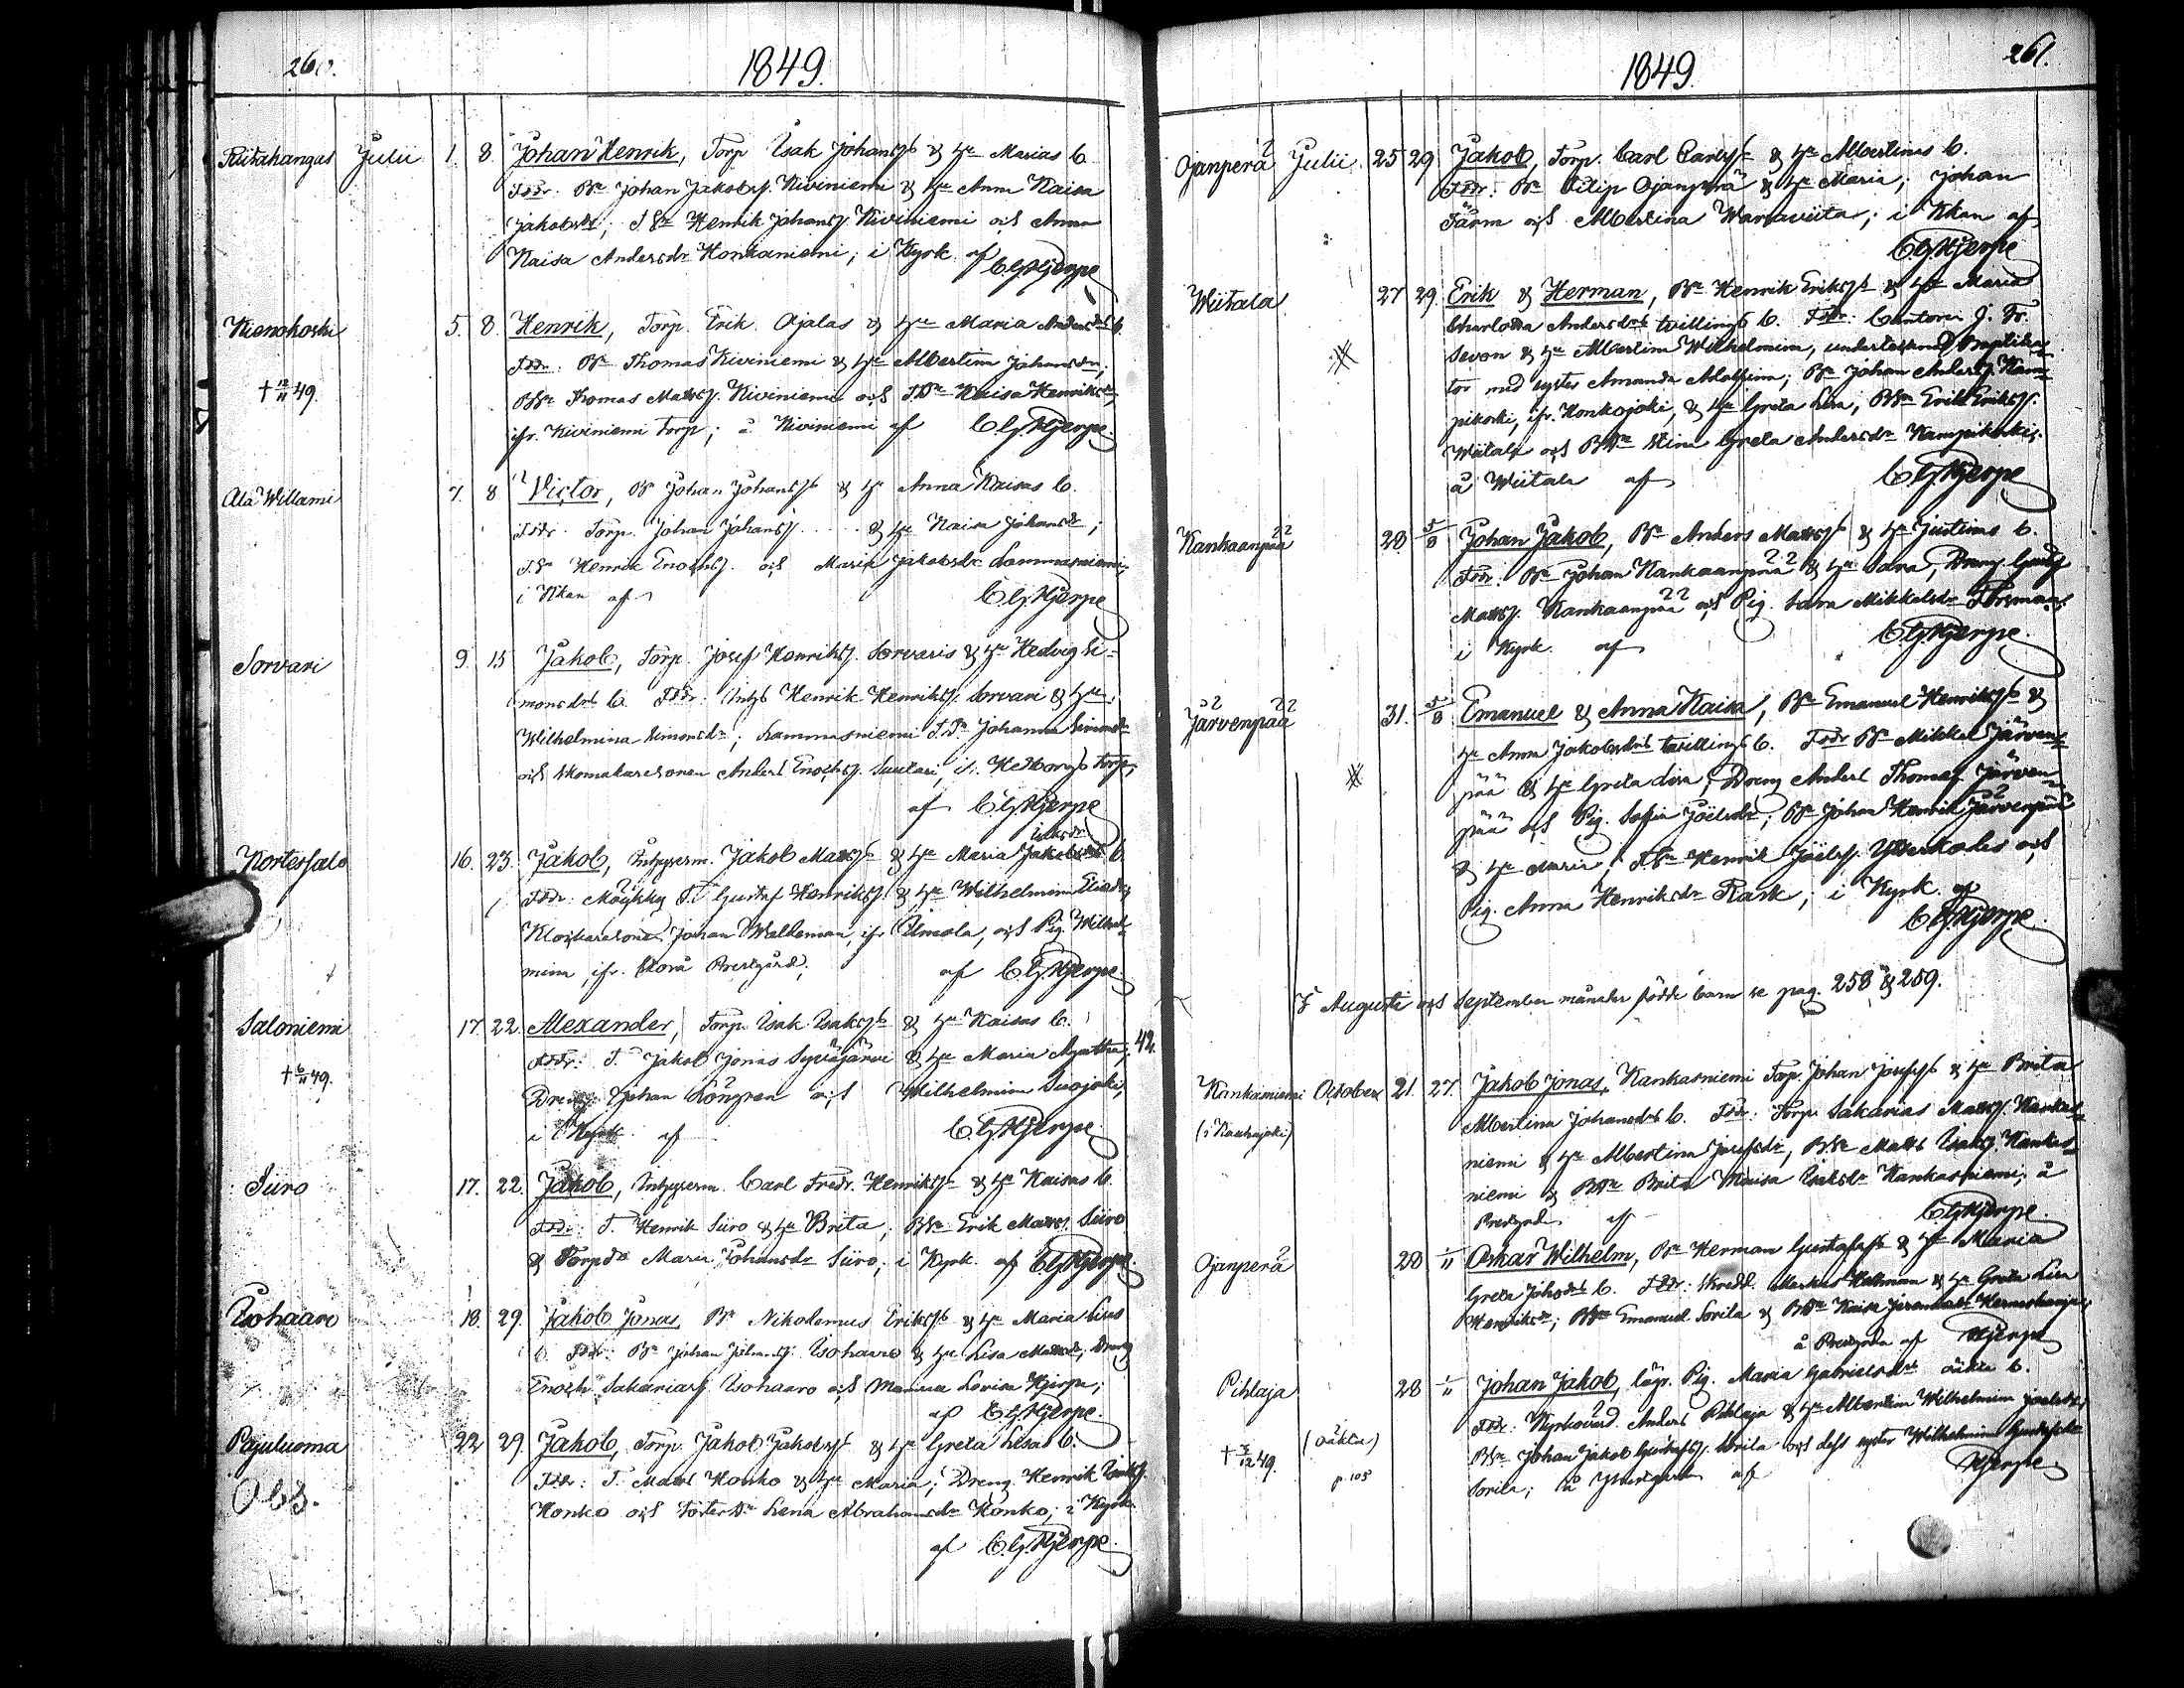 260.
1849.
Riitahangas Julii 1. 8. Johan Henrik, Torp Isak Johanss & H:u Marias b.
Fddr. B:n Johan Jakobsf. Kiviniemi & H:u Anna Kaisa
Jakobsdr; Henrik Johansf Kiviniemi och Anna
Kaisa Andersdr Honkaniemi; i Kyrk. af C G Hjerpe
5. 8. Henrik, Torp. Erik Ojalas & H:u Maria Andersdrs b.
Fddr. B:n Thomas Kiviniemi & H:u Albertina Johansdr;
Thomas Mattsf. Kiviniemi och Kaisa Henriksdr,
† 49.
ifr. Kiviniemi Torp; å Kiviniemi af C. G. Hjerpe.
Ala Willami 7. 8 Victor, B:n Johan Johanss & H:u Anna Kaisas b.
Fddr. Torp. Johan Johansf. & H:u Kaisa Johansdr;
Henrik Enochsf. och Maria Jakobsdr Lammasniemi,
i Kkan af C G Hjerpe
Sorvari 9. 15 Jakob, Torp. Josef Henriksf. Sorvaris & H:u Hedvig Si=
monsdrs b. Fddr: Inhs Henrik Henriksf. Sorvari & H:u
Wilhelmina Simonsdr; Lammasniemi Johanna Simonsdr
och Skomakaresonen Anders Enochsf. Suutari, Torp,
af C G Hjerpe
Isaksdrs
Kortessalo 16. 23. Jakob, Inhyserm. Jakob Matts & H:u Maria b.
Fddr: Möykky T. Gustaf Henriksf. & H:u Wilhelmina
Klockaresonen Johan Waldeman, ifr Ilmola, och Pig. Wilhel=
mina, ifr. Storå Prestgård; af C G Hjerpe.
Saloniemi 17. 22. Alexander, Torp. Isak Isaks & H:u Kaisas b.
Fddr: T. Jakob Jonas Syväjärvi & H:u Maria 42.
† 49.
Dreng Johan Löngren och Wilhelmina Suojoki;
i Kyrk. af C. G. Hjerpe.
Siiro 17. 22. Jakob, Inhyserm. Carl Fredr. Henriks & H:u Kaisas b.
Fddr: T. Henrik Siiro & H:u Brita; Erik Mattsf. Siiro
& Torpdr Maria Johansdr Siiro; i Kyrk. af C G Hjerpe.
Isohaaro 18. 29. Jakob Jonas, B:n Nikodemus Eriks & H:u Maria Lisas
b. Fddr: B:n Johan Johansf: Isohaaro & H:u Lisa Mattsdr; Dreng
Enoch Sakariasf Isohaaro och Mamma Lovisa Hjerpe;
af C G Hjerpe.
Pajuluoma 22 29. Jakob, Torp. Jakob Jakobs & H:u Greta Lisas b.
Fddr: T. Matts Honko & H:u Maria; Dreng Henrik
Obs.
Honko och Lena Abrahamsdr Honko; i Kyrk.
af C. G. Hjerpe.
261.
1849.
Ojanperä Julii 25 29. Jakob, Torp. Carl Carls & H:u Albertinas b.
Fddr: B:n Filip Ojanperä & H:u Maria; Johan
Färm och Albertina Warsaviita; i Kkan af
C G Hjerpe
Wiitala 27 29. Erik & Herman, B:n Henrik Eriks & H:u Maria
Charlotta Andersdrs tvillings b. Fddr: Cantorn J. Fr.
Sevon & H:u Albertina Wilhelmina, undertecknad
tor med syster Amanda Adolfina; B:n Johan Andersf. Kam=
pikoski, ifr. Honkojoki, & H:u Greta Lisa, Erik Eriksf.
Wiitala och Stina Greta Andersdr Kampikoski.
å Wiitala af C G Hjerpe
Kankaanpää 28 5/8 Johan Jakob, B:n Anders Matts & H:u Justinas b.
Fddr. B:n Johan Kankaanpää & H:u Sara, Dreng
Mattsf. Kankaanpää och Pig. Sara Mikkelsdr
i Kyrk. af C. G. Hjerpe.
Järvenpää 31. 5/8 Emanuel & Anna Kaisa, B:n Emanuel Henriks &
H:u Anna Jakobsdrs tvillings b. Fddr B:n Mikkel Järven=
pää & H:u Greta Lisa; Dreng Anders Thomasf Järven=
pää och Pig. Sofia Joelsdr; B:n Johan Henrik Järvenpää
& H:u Maria; Henrik Joelsf. och
Pig. Anna Henriksdr Rask; i Kyrk. af
C G Hjerpe.
I Augusti och September månader födde barn se pag. 258 & 259.
Kankaniemi October 21. 27. Jakob Jonas, Kankasniemi Torp. Johan Josefs & H:u Brita
(i Kauhajoki)
Albertina Johansdrs b. Fddr: Torp. Sakarias Mattsf. Kankas=
niemi & H:u Albertina Josefsdr, Matts Isaksf. Kankas=
niemi & Brita Maisa Isaksdr Kankasniemi; å
Prestgrdn af C G Hjerpe.
Ojanperä 28 1/11 Oskar Wilhelm, B:n Herman Gustafs & H:u Maria
Greta Johsdrs b. Fddr: Skredd. Markus & H:u Greta Lisa
Henriksdr; Emanuel Sorila & Kaisa
å Prestgrdn af Hjerpe
Pihlaja 28 1/11 Johan Jakob, lägr. Pig. Maria Gabrielsdrs oäkta b.
(oäkta)
Fddr: Kyrkovärd. Anders Pihlaja & H:u Albertina Wilhelmina Joelsdr;
† 49.
p. 105
Johan Jakob Gustafsf. Sorila och dess syster Wilhelmina Gustafsdr
Sorila; å Prestgrdn af Hjerpe